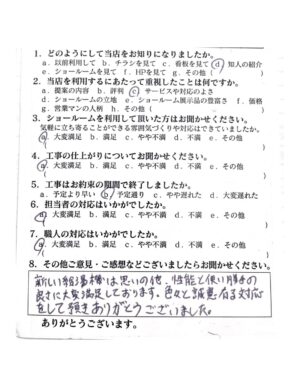 1. どのようにして当店をお知りになりましたか。
a. 以前利用して b. チラシを見て c. 看板を見て d. 知人の紹介
e. ショールームを見て f. HPを見て g. その他( )
2. 当店を利用するにあたって重視したことは何ですか。
a. 提案の内容 b. 評判 c. サービスや対応のよさ
d. ショールームの立地 e. ショールーム展示品の豊富さ f. 価格
g. 営業マンの人柄 h. その他( )
3. ショールームを利用して頂いた方はお聞かせください。
気軽に立ち寄ることができる雰囲気づくりや対応はできていましたか。
a. 大変満足 b. 満足 c. やや不満 d. 不満 e. その他
( )
4. 工事の仕上がりについてお聞かせください。
a. 大変満足 b. 満足 c. やや不満 d. 不満 e. その他
( )
5. 工事はお約束の期間で終了しましたか。
a. 予定より早い b. 予定通り c. やや遅れた d. 大変遅れた
6. 担当者の対応はいかがでしたか。
a. 大変満足 b. 満足 c. やや不満 d. 不満 e. その他
( )
7. 職人の対応はいかがでしたか。
a. 大変満足 b. 満足 c. やや不満 d. 不満 e. その他
( )
8. その他ご意見・ご感想などございましたらお聞かせください。
新しい給湯機は思いの他、性能と使い勝手の
良さに大変満足しております。色々と誠意有る対応
をして頂きありがとうございました。
ありがとうございます。